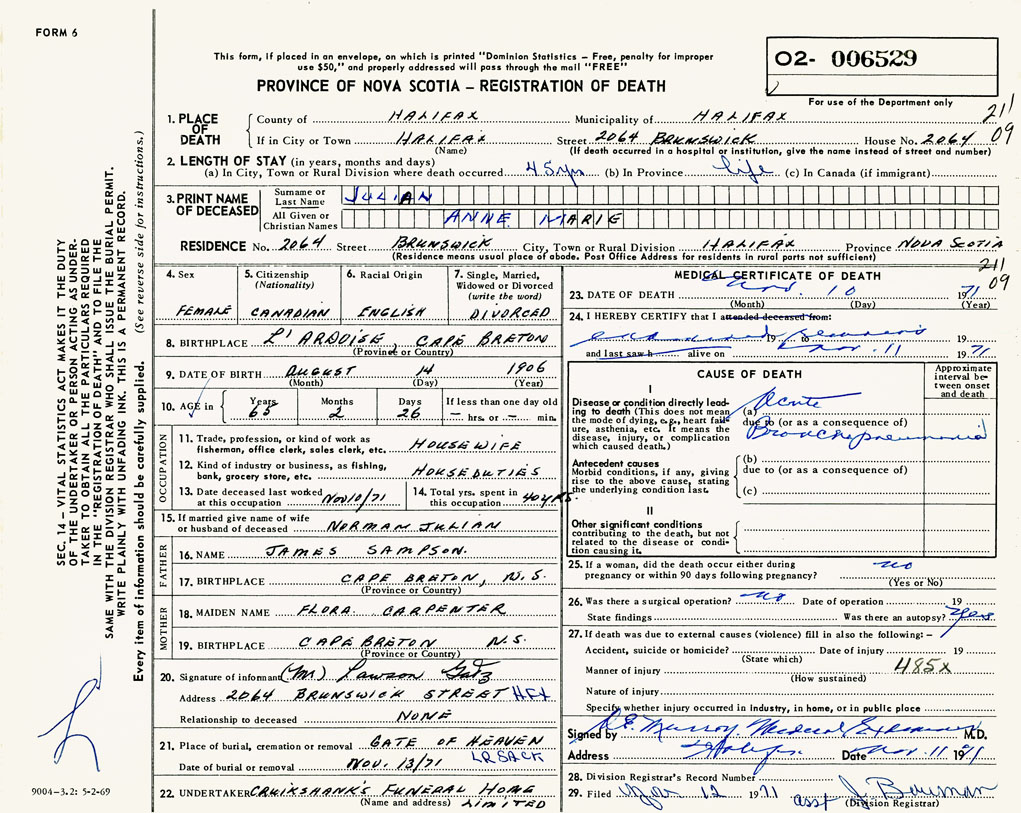 FORM 6
This form, if placed in an envelope, on which is printed "Dominion Statistics – Free, penalty for improper
use $50," and properly addressed will pass through the mail "FREE"
PROVINCE OF NOVA SCOTIA – REGISTRATION OF DEATH
02- 006529
For use of the Department only
211
09
1. PLACE OF DEATH
County of HALIFAX Municipality of HALIFAX
If in City or Town HALIFAX Street 2064 BRUNSWICK House No. 2064
(Name) (If death occurred in a hospital or institution, give the name instead of street and number)
2. LENGTH OF STAY (in years, months and days)
(a) In City, Town or Rural Division where death occurred 45 yrs (b) In Province life (c) In Canada (if immigrant)
3. PRINT NAME OF DECEASED
Surname or Last Name JULIAN
All Given or Christian Names ANNE MARIE
RESIDENCE No. 2064 Street BRUNSWICK City, Town or Rural Division HALIFAX Province NOVA SCOTIA
(Residence means usual place of abode. Post Office Address for residents in rural parts not sufficient)
4. Sex
FEMALE
5. Citizenship
(Nationality)
CANADIAN
6. Racial Origin
ENGLISH
7. Single, Married,
Widowed or Divorced
(write the word)
DIVORCED
8. BIRTHPLACE L'ARDOISE, CAPE BRETON
(Province or Country)
9. DATE OF BIRTH AUGUST 14 1906
(Month) (Day) (Year)
10. AGE in
Years 65
Months 2
Days 26
If less than one day old
– hrs. or – min.
OCCUPATION
11. Trade, profession, or kind of work as
fisherman, office clerk, sales clerk, etc. HOUSEWIFE
12. Kind of industry or business, as fishing,
bank, grocery store, etc. HOUSE DUTIES
13. Date deceased last worked
at this occupation NOV 10/71
14. Total yrs. spent in
this occupation 40 YRS.
15. If married give name of wife
or husband of deceased NORMAN JULIAN
FATHER
16. NAME JAMES SAMPSON.
17. BIRTHPLACE CAPE BRETON, N.S.
(Province or Country)
MOTHER
18. MAIDEN NAME FLORA CARPENTER
19. BIRTHPLACE CAPE BRETON N.S.
(Province or Country)
20. Signature of informant (M) Lawson
Address 2064 BRUNSWICK STREET HFX
Relationship to deceased NONE
21. Place of burial, cremation or removal GATE OF HEAVEN
Date of burial or removal NOV. 13/71 LR SACK
22. UNDERTAKER CRUIKSHANK'S FUNERAL HOME
(Name and address) LIMITED
MEDICAL CERTIFICATE OF DEATH
211
09
23. DATE OF DEATH Nov. 10 1971
(Month) (Day) (Year)
24. I HEREBY CERTIFY that I attended deceased from:
19 to 19
and last saw h alive on Nov. 11 1971
CAUSE OF DEATH
Approximate
interval be-
tween onset
and death
I
Disease or condition directly lead-
ing to death (This does not mean
the mode of dying, e.g., heart fail-
ure, asthenia, etc. It means the
disease, injury, or complication
which caused death.)
(a) Acute
due to (or as a consequence of)
Bronchopneumonia
Antecedent causes
Morbid conditions, if any, giving
rise to the above cause, stating
the underlying condition last.
(b)
due to (or as a consequence of)
(c)
II
Other significant conditions
contributing to the death, but not
related to the disease or condi-
tion causing it.
25. If a woman, did the death occur either during
pregnancy or within 90 days following pregnancy? no
(Yes or No)
26. Was there a surgical operation? no Date of operation 19
State findings Was there an autopsy? yes
27. If death was due to external causes (violence) fill in also the following: –
Accident, suicide or homicide? Date of injury 19
(State which)
Manner of injury 485X
(How sustained)
Nature of injury
Specify whether injury occurred in industry, in home, or in public place
Signed by Murray Medical Examiner M.D.
Address Halifax Date Nov. 11 1971
28. Division Registrar's Record Number
29. Filed Nov 12 1971 asst J. Bowman
(Division Registrar)
SEC. 14 – VITAL STATISTICS ACT MAKES IT THE DUTY
OF THE UNDERTAKER OR PERSON ACTING AS UNDER-
TAKER TO OBTAIN ALL THE PARTICULARS REQUIRED
IN THE "REGISTRATION OF DEATH" AND TO FILE THE
SAME WITH THE DIVISION REGISTRAR WHO SHALL ISSUE THE BURIAL PERMIT.
WRITE PLAINLY WITH UNFADING INK. THIS IS A PERMANENT RECORD.
Every item of information should be carefully supplied. (See reverse side for instructions.)
9004-3.2: 5-2-69